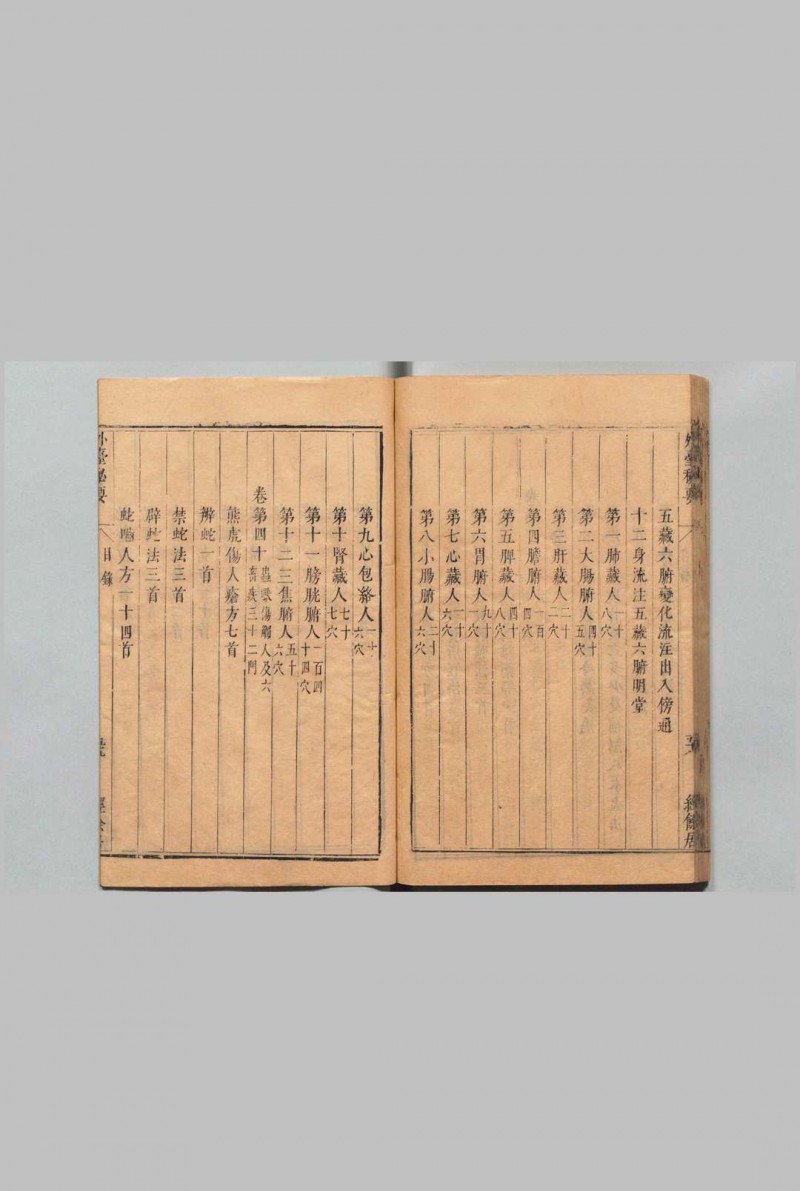 五藏六腑變化流注出入傍通
十二身流注五藏六腑明堂
第一肺藏人一十八穴
第二大腸腑人四十五穴
第三肝藏人二十二穴
第四膽腑人一百四穴
第五脾藏人四十八穴
第六胃腑人九十一穴
第七心藏人一十六穴
第八小腸腑人二十六穴
經餘居
第九心包絡人一十六穴
第十腎藏人七十七穴
第十一膀胱腑人一百四十四穴
第十二三焦腑人五十六穴
卷第四十蟲獸傷觸人及六畜疾三十二門
熊虎傷人瘡方七首
辨蛇一首
禁蛇法三首
辟蛇法三首
蛇螫人方一十四首
外臺秘要
目錄